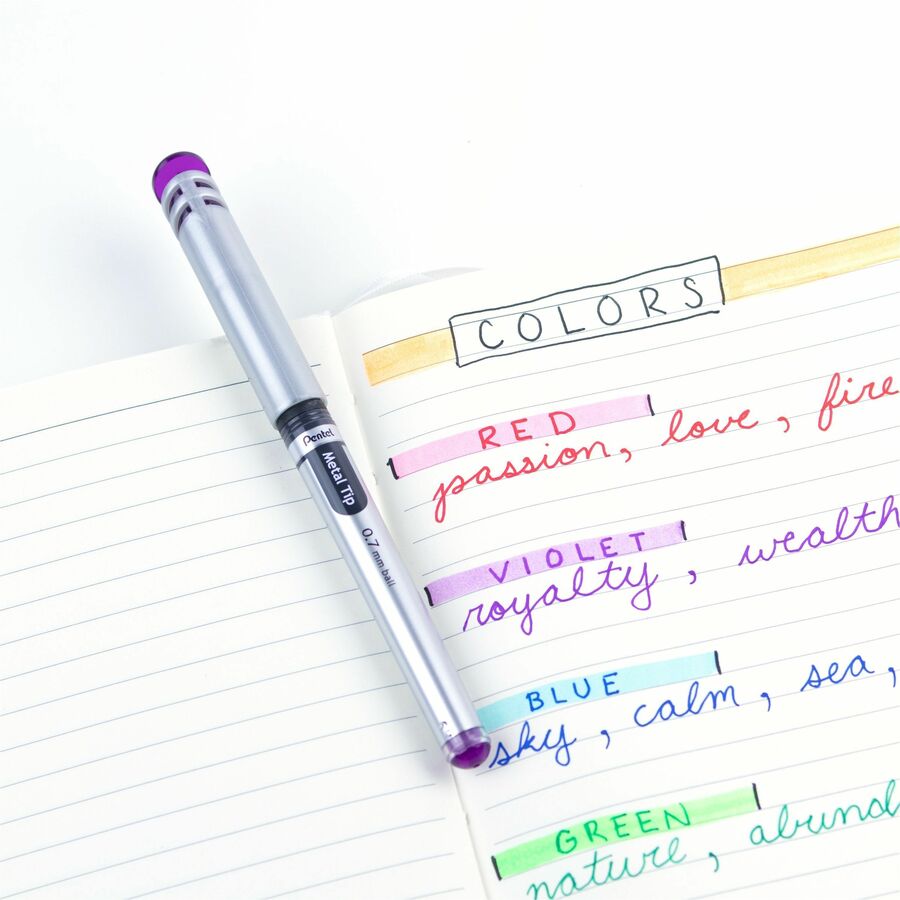 COLORS
RED
passion, love, fire
VIOLET
royalty, wealth
BLUE
sky, calm, sea,
GREEN
nature, abund
Pentel
Metal Tip
0.7 mm ball